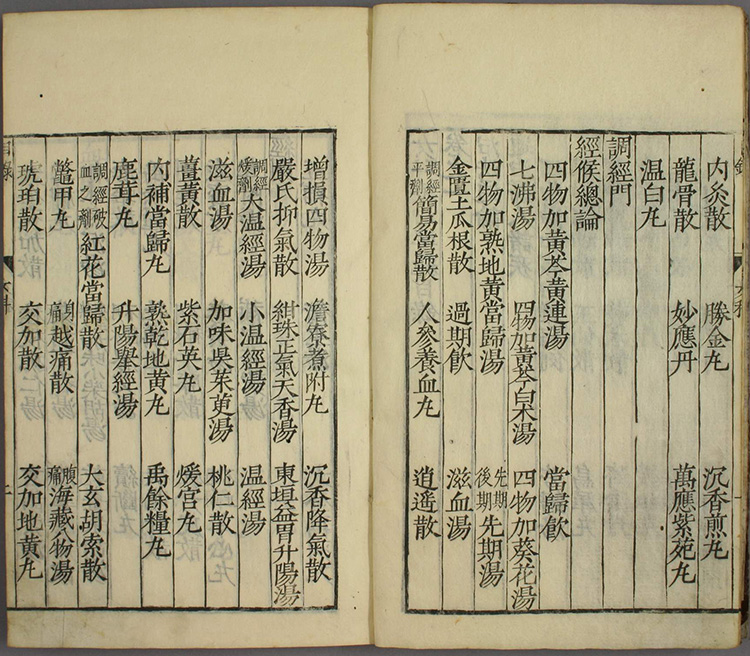 內灸散 勝金丸 沉香煎丸
龍骨散 妙應丹 萬應紫苑丸
温白丸
調經門
經候總論
四物加黃芩黃連湯 當歸飲
七沸湯 四物加黃芩白朮湯 四物加葵花湯
四物加熟地黃當歸湯 先期後期先期湯
金匱土瓜根散 過期飲 滋血湯
調經平劑簡易當歸散 人參養血丸 逍遙散
增損四物湯 澹寮煮附丸 沉香降氣散
嚴氏抑氣散 紺珠正氣天香湯 東垣益胃升陽湯
調經緩劑大温經湯 小温經湯 温經湯
滋血湯 加味吳茱萸湯 桃仁散
薑黃散 紫石英丸 煖宮丸
內補當歸丸 熟乾地黃丸 禹餘糧丸
鹿茸丸 升陽舉經湯
調經破血之劑紅花當歸散 大玄胡索散
鼈甲丸 身痛越痛散 腹痛海藏八物湯
琥珀散 交加散 交加地黃丸